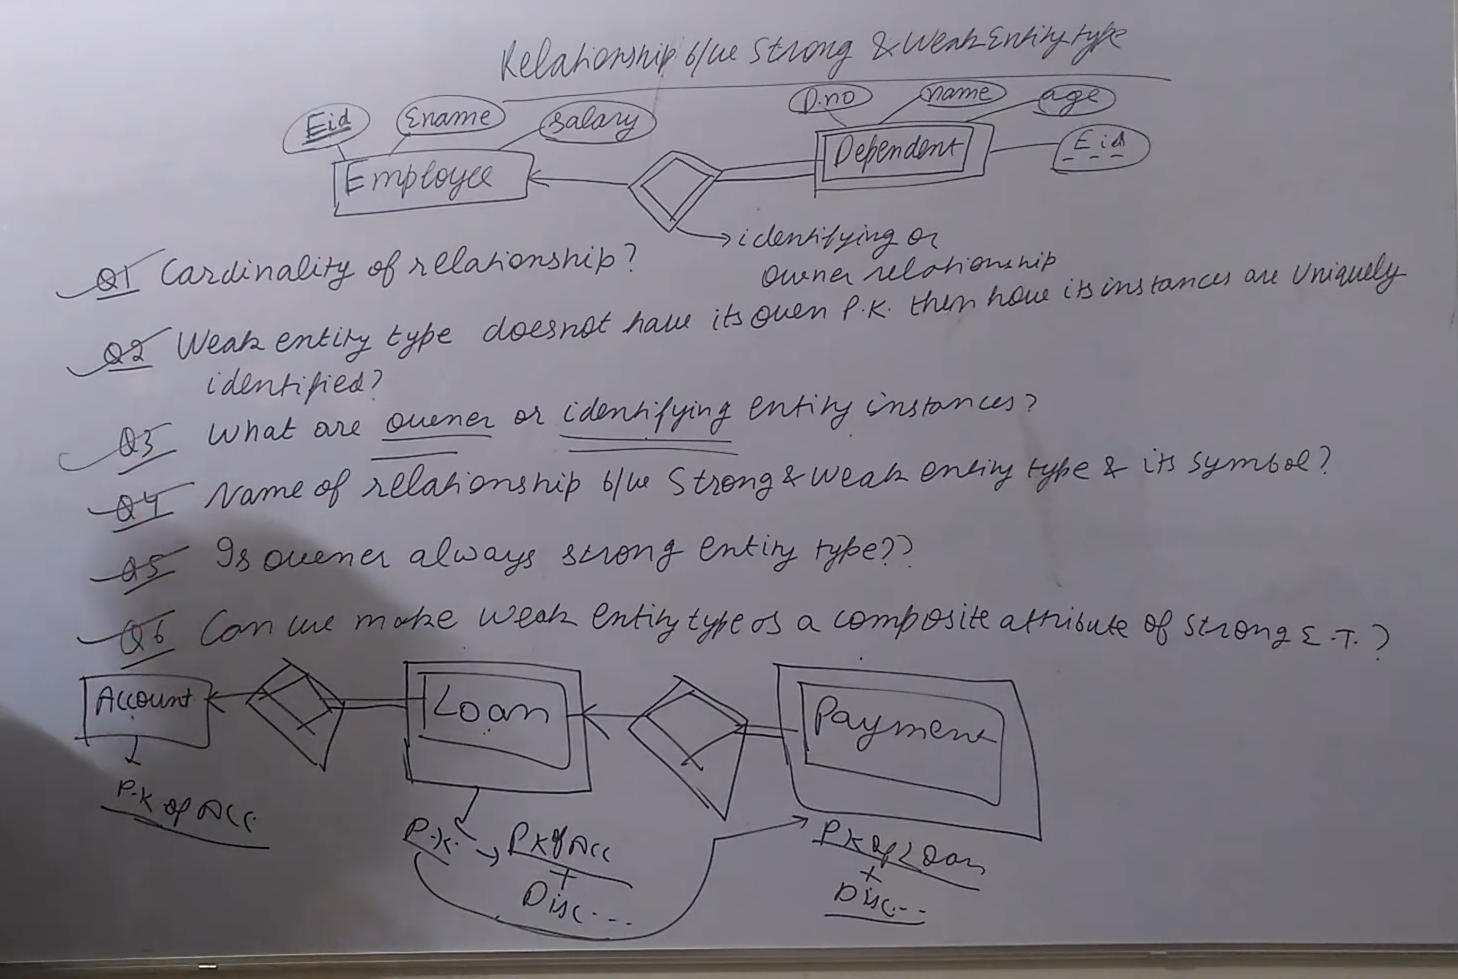 Relationship b/w Strong & Weak Entity type
Eid Ename Salary D.no name age
Employee Dependent Eid
identifying or
owner relationship
Q1 Cardinality of relationship?
Q2 Weak entity type doesnot have its owen P.K. then how its instances are Uniquely
identified?
Q3 What are owener or identifying entity instances?
Q4 Name of relationship b/w Strong & weak entity type & its symbol?
Q5 Is owener always strong entity type??
Q6 Can we make weak entity type as a composite attribute of strong E.T.?
Account Loan Payment
P.K of Acc
P.K. PK of Acc
+
Disc...
PK of Loan
+
Disc...